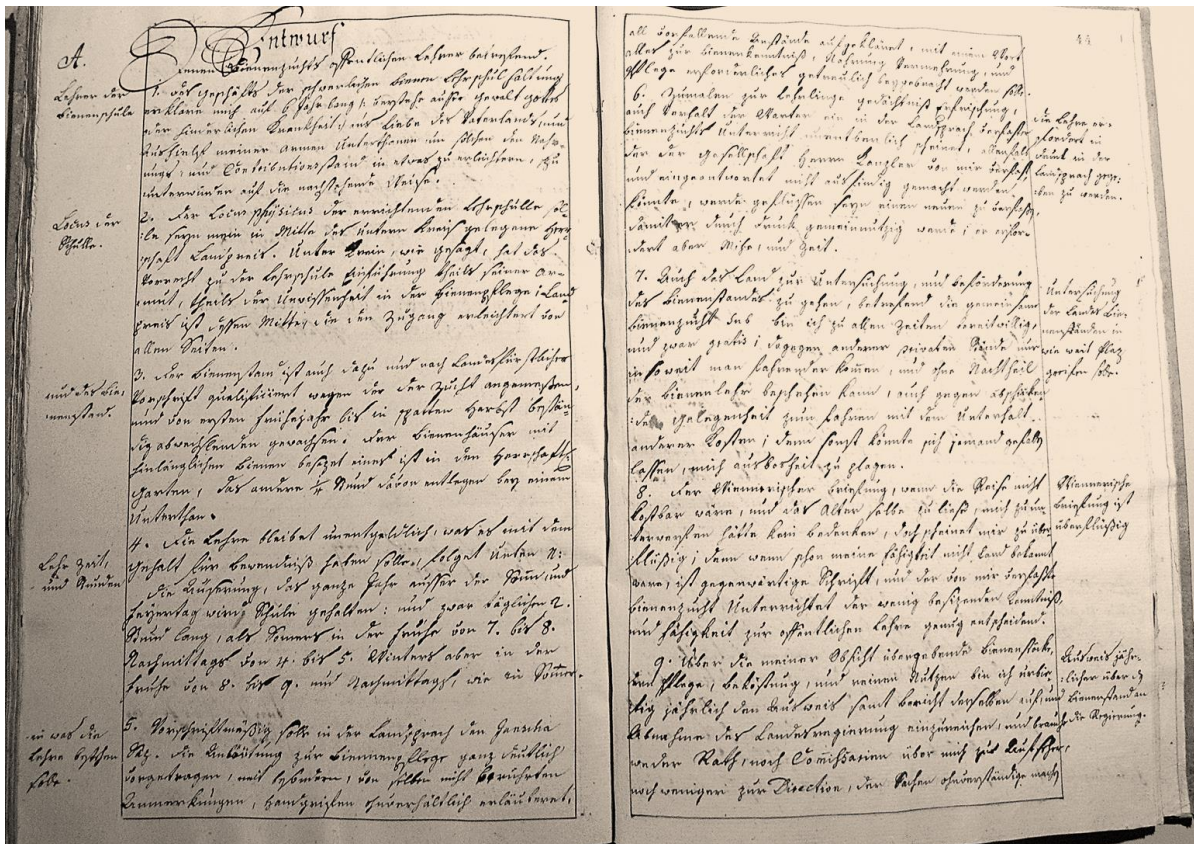 Entwurf
A.
Einen Bienenzuchts öffentlichen Lehrer betreffend.
Lehrer der
Bienenschule
1. Das Geschäft der schwerlichen Bienen Lehrschül haltung
erkläre mich auf 6 Jahr lang /: verstehe ausser gewalt gottes
oder hinderlichen Krankheit :/ aus Liebe des Vaterlands, und
meiner armen Unterthanen um solchen den Nahr-
ungs, und Contributionsstand in etwas zu erleichtern, zu
unterwinden auf die nachstehende Weise.
Locus der
Schulle.
2. Der Locus physicus der errichtenden Lehrschulle sol-
le seyn mein in Mitte des untern Kreis gelegene Herr-
schaft Landpreis. Unter Krein, wie gesagt, hat das
Vorrecht zu der Lehrschule Einführung theils seiner Ar-
muth, theils der Unwissenheit in der Bienenpflege; Land
preis ist dessen Mitte, die den Zugang erleichtert von
allen Seiten.
und des Bie-
nenstand.
3. Der Bienenstand ist auch dazu und nach Landesfürstlicher
Vorschrift qualificiert wegen der der Zucht angemessenen,
und von ersten Frühejahr bis in spatten Herbst bestän-
dig abwechslenden gewachsen. Der Bienenhäuser mit
hinlänglichen Bienen besezet eines ist in den Herrschafts-
Garten, das andere 1/4 Stund davon entlegen bey einem
Unterthan.
Lehr Zeit,
und Stunden
4. Die Lehre bleibet unentgeldlich, was es mit dem
Gehalt für bewendniß haben solle, folget unten N:
die Äuserung, das ganze Jahr ausser der Sonn und
Feyertag wird Schule gehalten: und zwar täglichen 2.
Stund lang, als Somers in der fruhe von 7. bis 8.
Nachmittags von 4. bis 5. Winters aber in der
fruhe von 8. bis 9. und Nachmittags, wie in Somer.
in was die
Lehre bestehen
solle.
5. Vorschriftmässig solle in der Landsprach den Janscha
die Anleitung zur Bienenpflege ganz deutlich
vorgetragen, mit besonderen, von selben nicht berührten
Anmerkungen, Handgriffen ohnverhältlich erläuteret,
44
all vorfallende Umstände aufgekläret, mit einem Wort
alles zur Bienenkenntniß, Nahrung Vermehrung, und
Pflege erforderliches getreulich beygebracht werden solle.
die Lehre er-
fordert in
Druck in der
Landsprach gege-
ben zu werden.
6. Zumalen zur Lehrlinge gedächtniß erfrischung,
auch Vorhalt der Wärter ein in der Landsprach verfaster
Bienenzuchts Unterricht unentberlich scheinet, allenfalls
der der Gesellschaft Herrn Kanzler von mir verfast
und eingeantwortet nicht ausfindig gemacht werden
könnte, werde geflissen seyn einen neuen zu verfassen,
damit er durch Druck gemeinnützig werde; er erfor-
dert aber Mihe, und Zeit.
Untersuchung
der Landes Bie-
nenständen in
wie weit Plaz
greifen solle.
7. Auch das Land zur Untersuchung, und beförderung
des Bienenstandes zu gehen, betreffend die gemeinsame
Bienenzucht bin ich zu allen Zeiten bereitwillig,
und zwar gratis; dagegen anderer privaten Stände nur
insoweit man fahrender komen, und ohne Nachtheil
der Bienenlehr beschehen kann, auch gegen
der Gelegenheit zum fahren mit den Unterhalt
anderer Kosten; dann sonst könnte sich jemand gefallen
lassen, mich aus bosheit zu plagen.
Wiennerische
Briefung ist
überflüssig
8. Der Wiennerischer briefung, wenn die Reise nicht
kostbar wäre, und das Alter solche zu ließe, mich zu un-
terwerfen hätte kein bedenken, doch scheinet mir zu über-
flüssig; denn wenn schon meine fähigkeit nicht Land bekannt
wäre, ist gegenwärtige Schrift, und der von mir verfaßte
Bienenzucht Unterricht der wenig besizenden kenntniß,
und fähigkeit zur öffentlichen Lehre genug entscheidend.
Ausweis jähr-
licher über
Bienenstand an
die Regierung.
9. Über die meiner Obsicht übergebende Bienenstöcke,
deren Pflege, beköstung, und reinen Nutzen bin ich erbie-
tig jährlich den Ausweis samt bericht derselben auf, und
Abnahme des Landesregierung einzureichen, und brauch
weder Rath, noch Comißarien über mich zur Aufseher,
noch weniger zur Direction, der Sachen ohnverständige mach